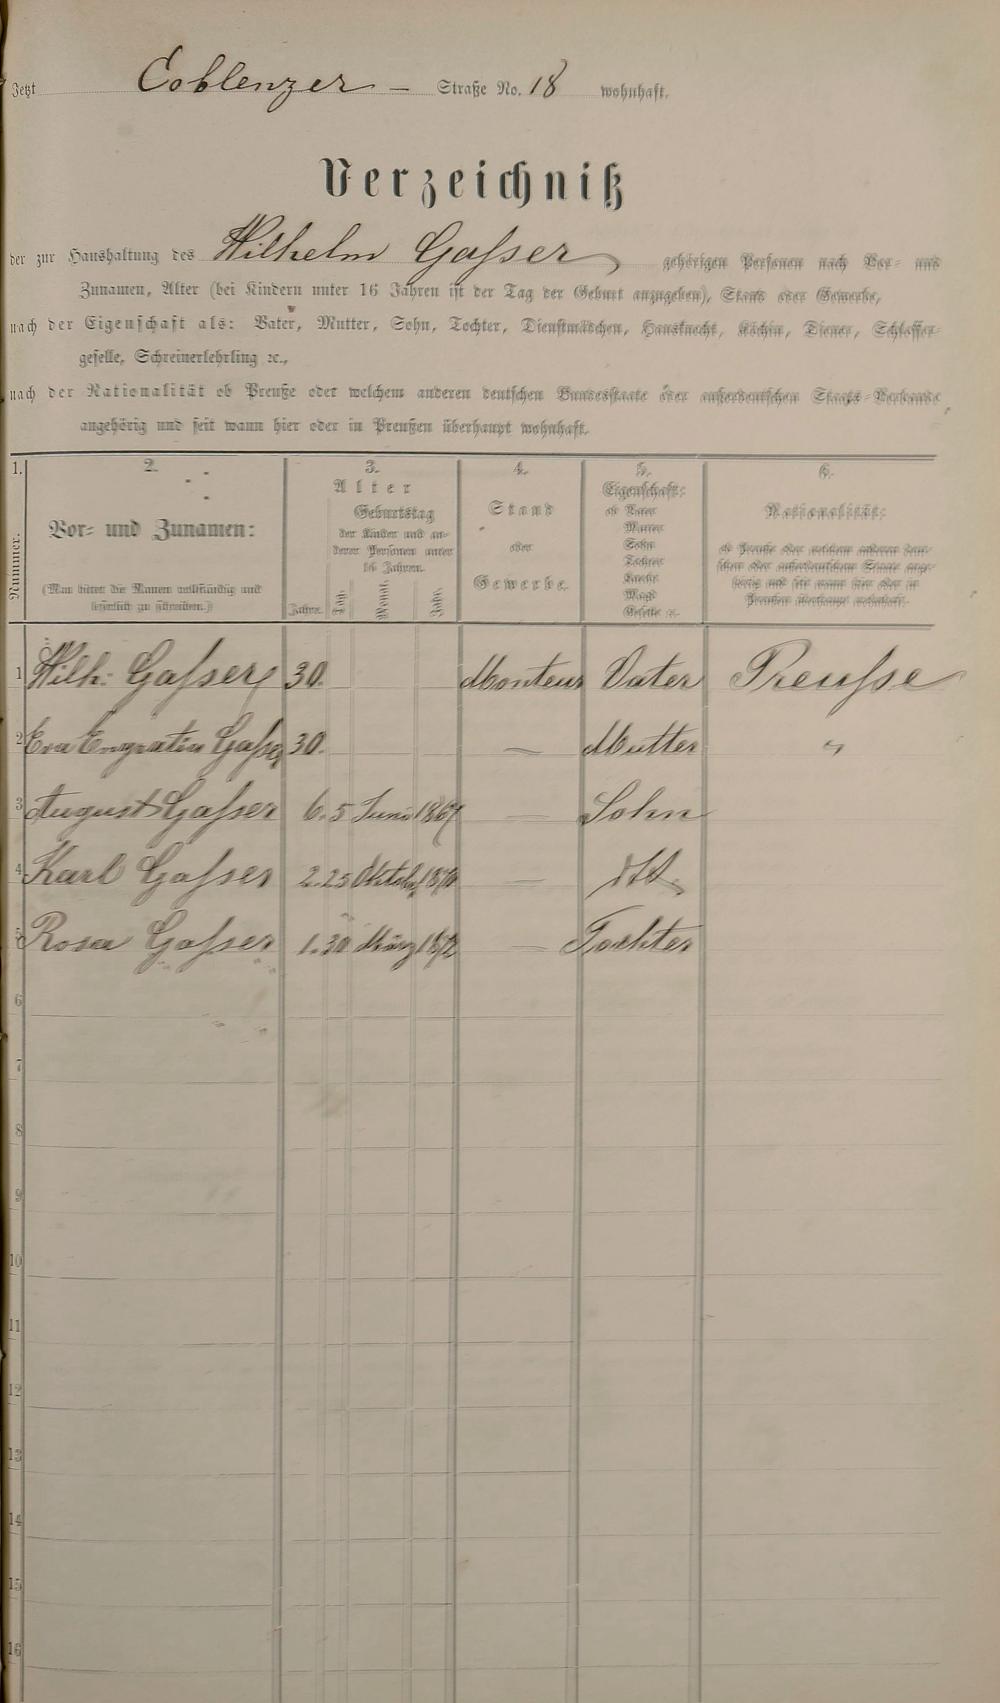 Jetzt Coblenzer - Straße No. 18 wohnhaft.
Verzeichniß
der zur Haushaltung des Wilhelm Gaßser gehörigen Personen nach Vor- und
Zunamen, Alter (bei Kindern unter 16 Jahren ist der Tag der Geburt anzugeben), Stand oder Gewerbe,
nach der Eigenschaft als: Vater, Mutter, Sohn, Tochter, Dienstmädchen, Hausknecht, Köchin, Diener, Schlosser-
geselle, Schreinerlehrling ꝛc.,
nach der Nationalität ob Preuße oder welchem anderen deutschen Bundesstaate oder außerdeutschen Staats-Verbande
angehörig und seit wann hier oder in Preußen überhaupt wohnhaft.
1. 2. 3. 4. 5. 6.
Nummer. Vor- und Zunamen: Alter Stand oder Gewerbe. Eigenschaft: Nationalität:
(Man bittet die Namen vollständig und
leserlich zu schreiben.)
Geburtstag
der Kinder und an-
derer Personen unter
16 Jahren.
Jahre. Tag. Monat. Jahr.
ob Vater
Mutter
Sohn
Tochter
Knecht
Magd
Geselle ꝛc.
ob Preuße oder welchem anderen deut-
schen oder außerdeutschen Staate ange-
hörig und seit wann hier oder in
Preußen überhaupt wohnhaft.
1 Wilh: Gaßser 30. Monteur Vater Preuße
2 Eva Gaßser 30. — Mutter "
3 August Gaßser 6. 5 Juni 1867 — Sohn
4 Karl Gaßser 2. 25 Oktober 1870 — dto.
5 Rosa Gaßser 1. 30 März 1872 — Tochter
6
7
8
9
10
11
12
13
14
15
16